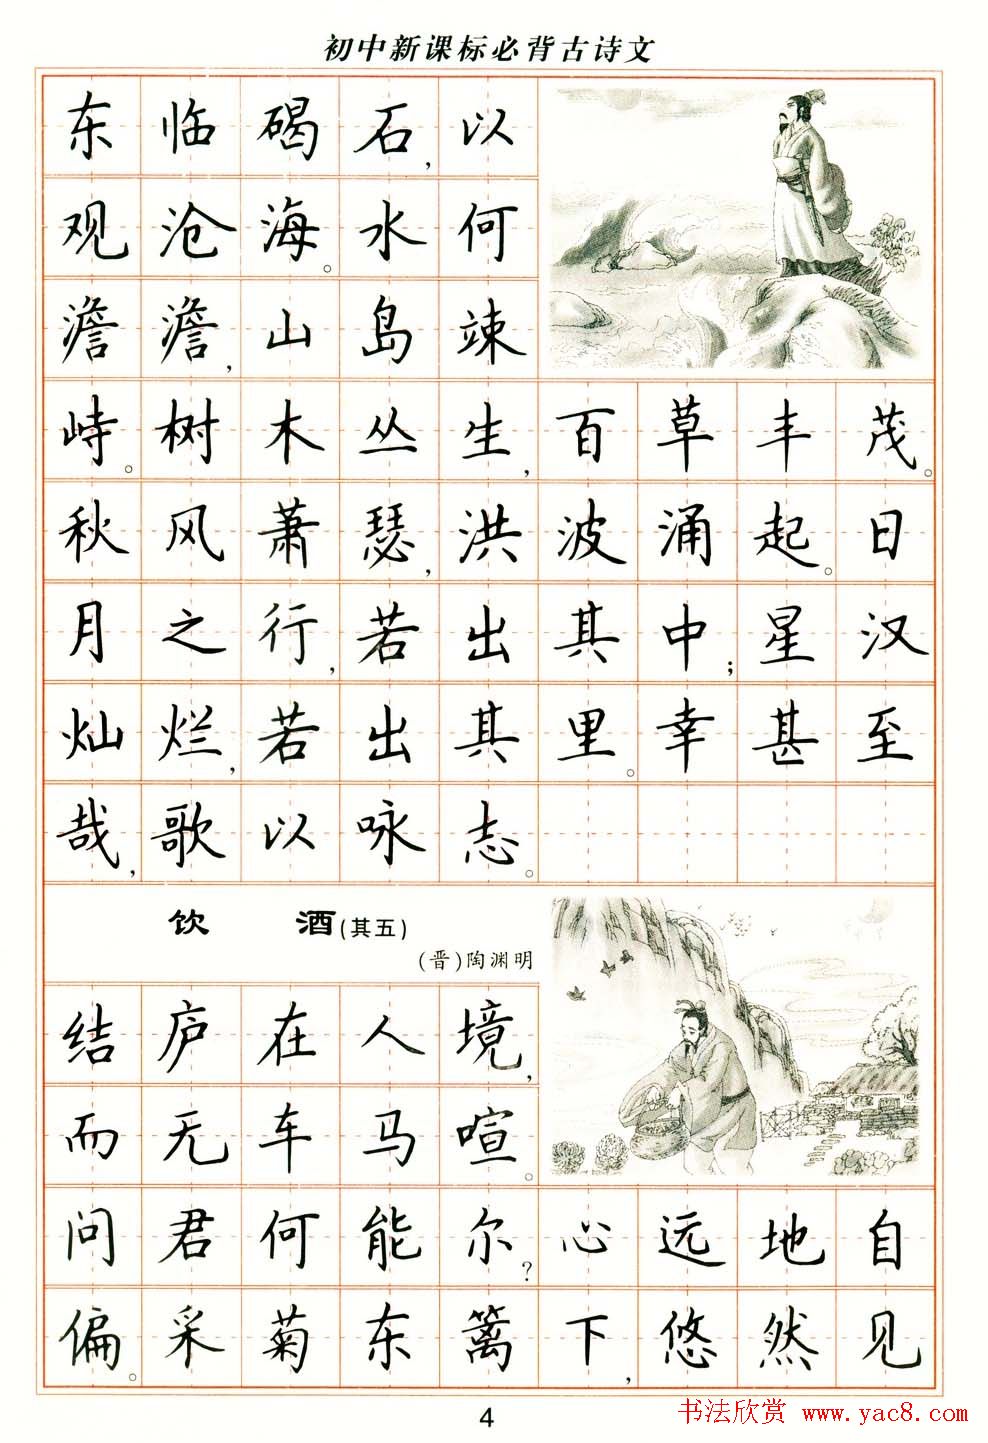 初中新课标必背古诗文
东临碣石,以
观沧海。水何
澹澹,山岛竦
峙。树木丛生,百草丰茂。
秋风萧瑟,洪波涌起。日
月之行,若出其中;星汉
灿烂,若出其里。幸甚至
哉,歌以咏志。
饮 酒(其五)
(晋)陶渊明
结庐在人境,
而无车马喧。
问君何能尔?心远地自
偏。采菊东篱下,悠然见
4
书法欣赏 www.yac8.com